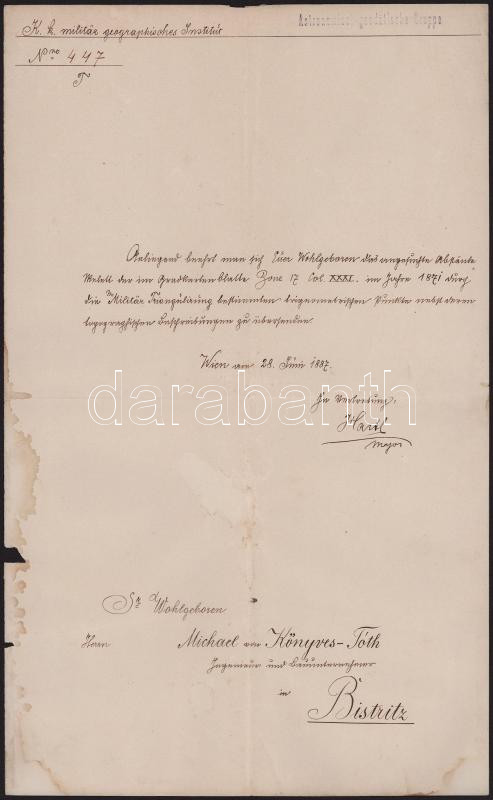 K. k. militär geographisches Institut
Astronomisch-geodätische Gruppe
Nro 447
T
Anliegend beehrt man sich Euer Wohlgeboren das angesuchte Abständs
Netz der im Gradkartenblatte Zone 17 Col. XXXI. im Jahre 1871 durch
die Militär Triangulirung bestimmten trigonometrischen Punkte nebst deren
topographischen Beschreibungen zu übersenden.
Wien am 28. Juni 1887.
In Vertretung:
Hartl
Major
darabanth
Sr Wohlgeboren
Herrn Michael von Könyves-Tóth
Ingenieur und Bauunternehmer
in
Bistritz